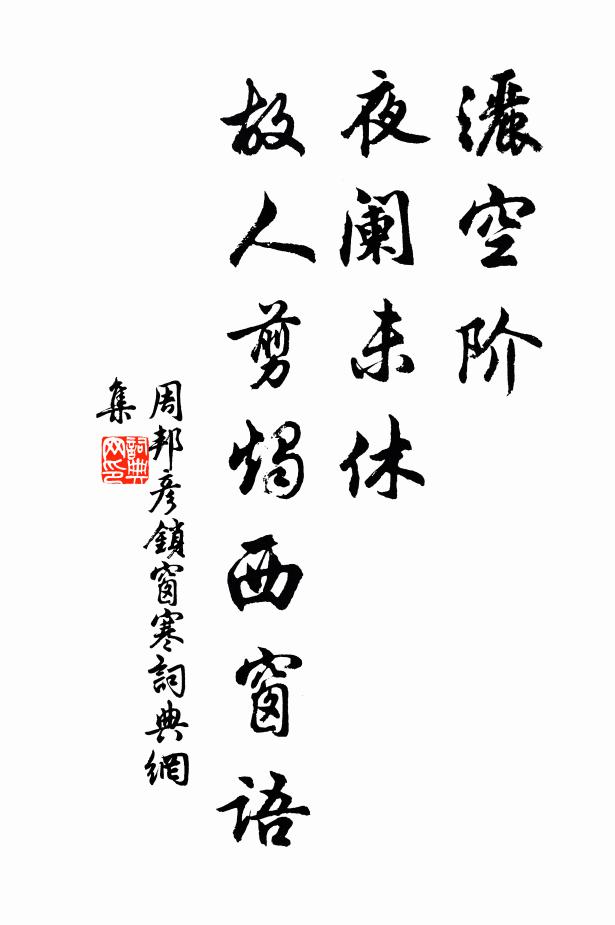 灑空阶
夜阑未休
故人剪烛西窗语
周邦彦鎖窗寒詞典網
集
詞典
网印